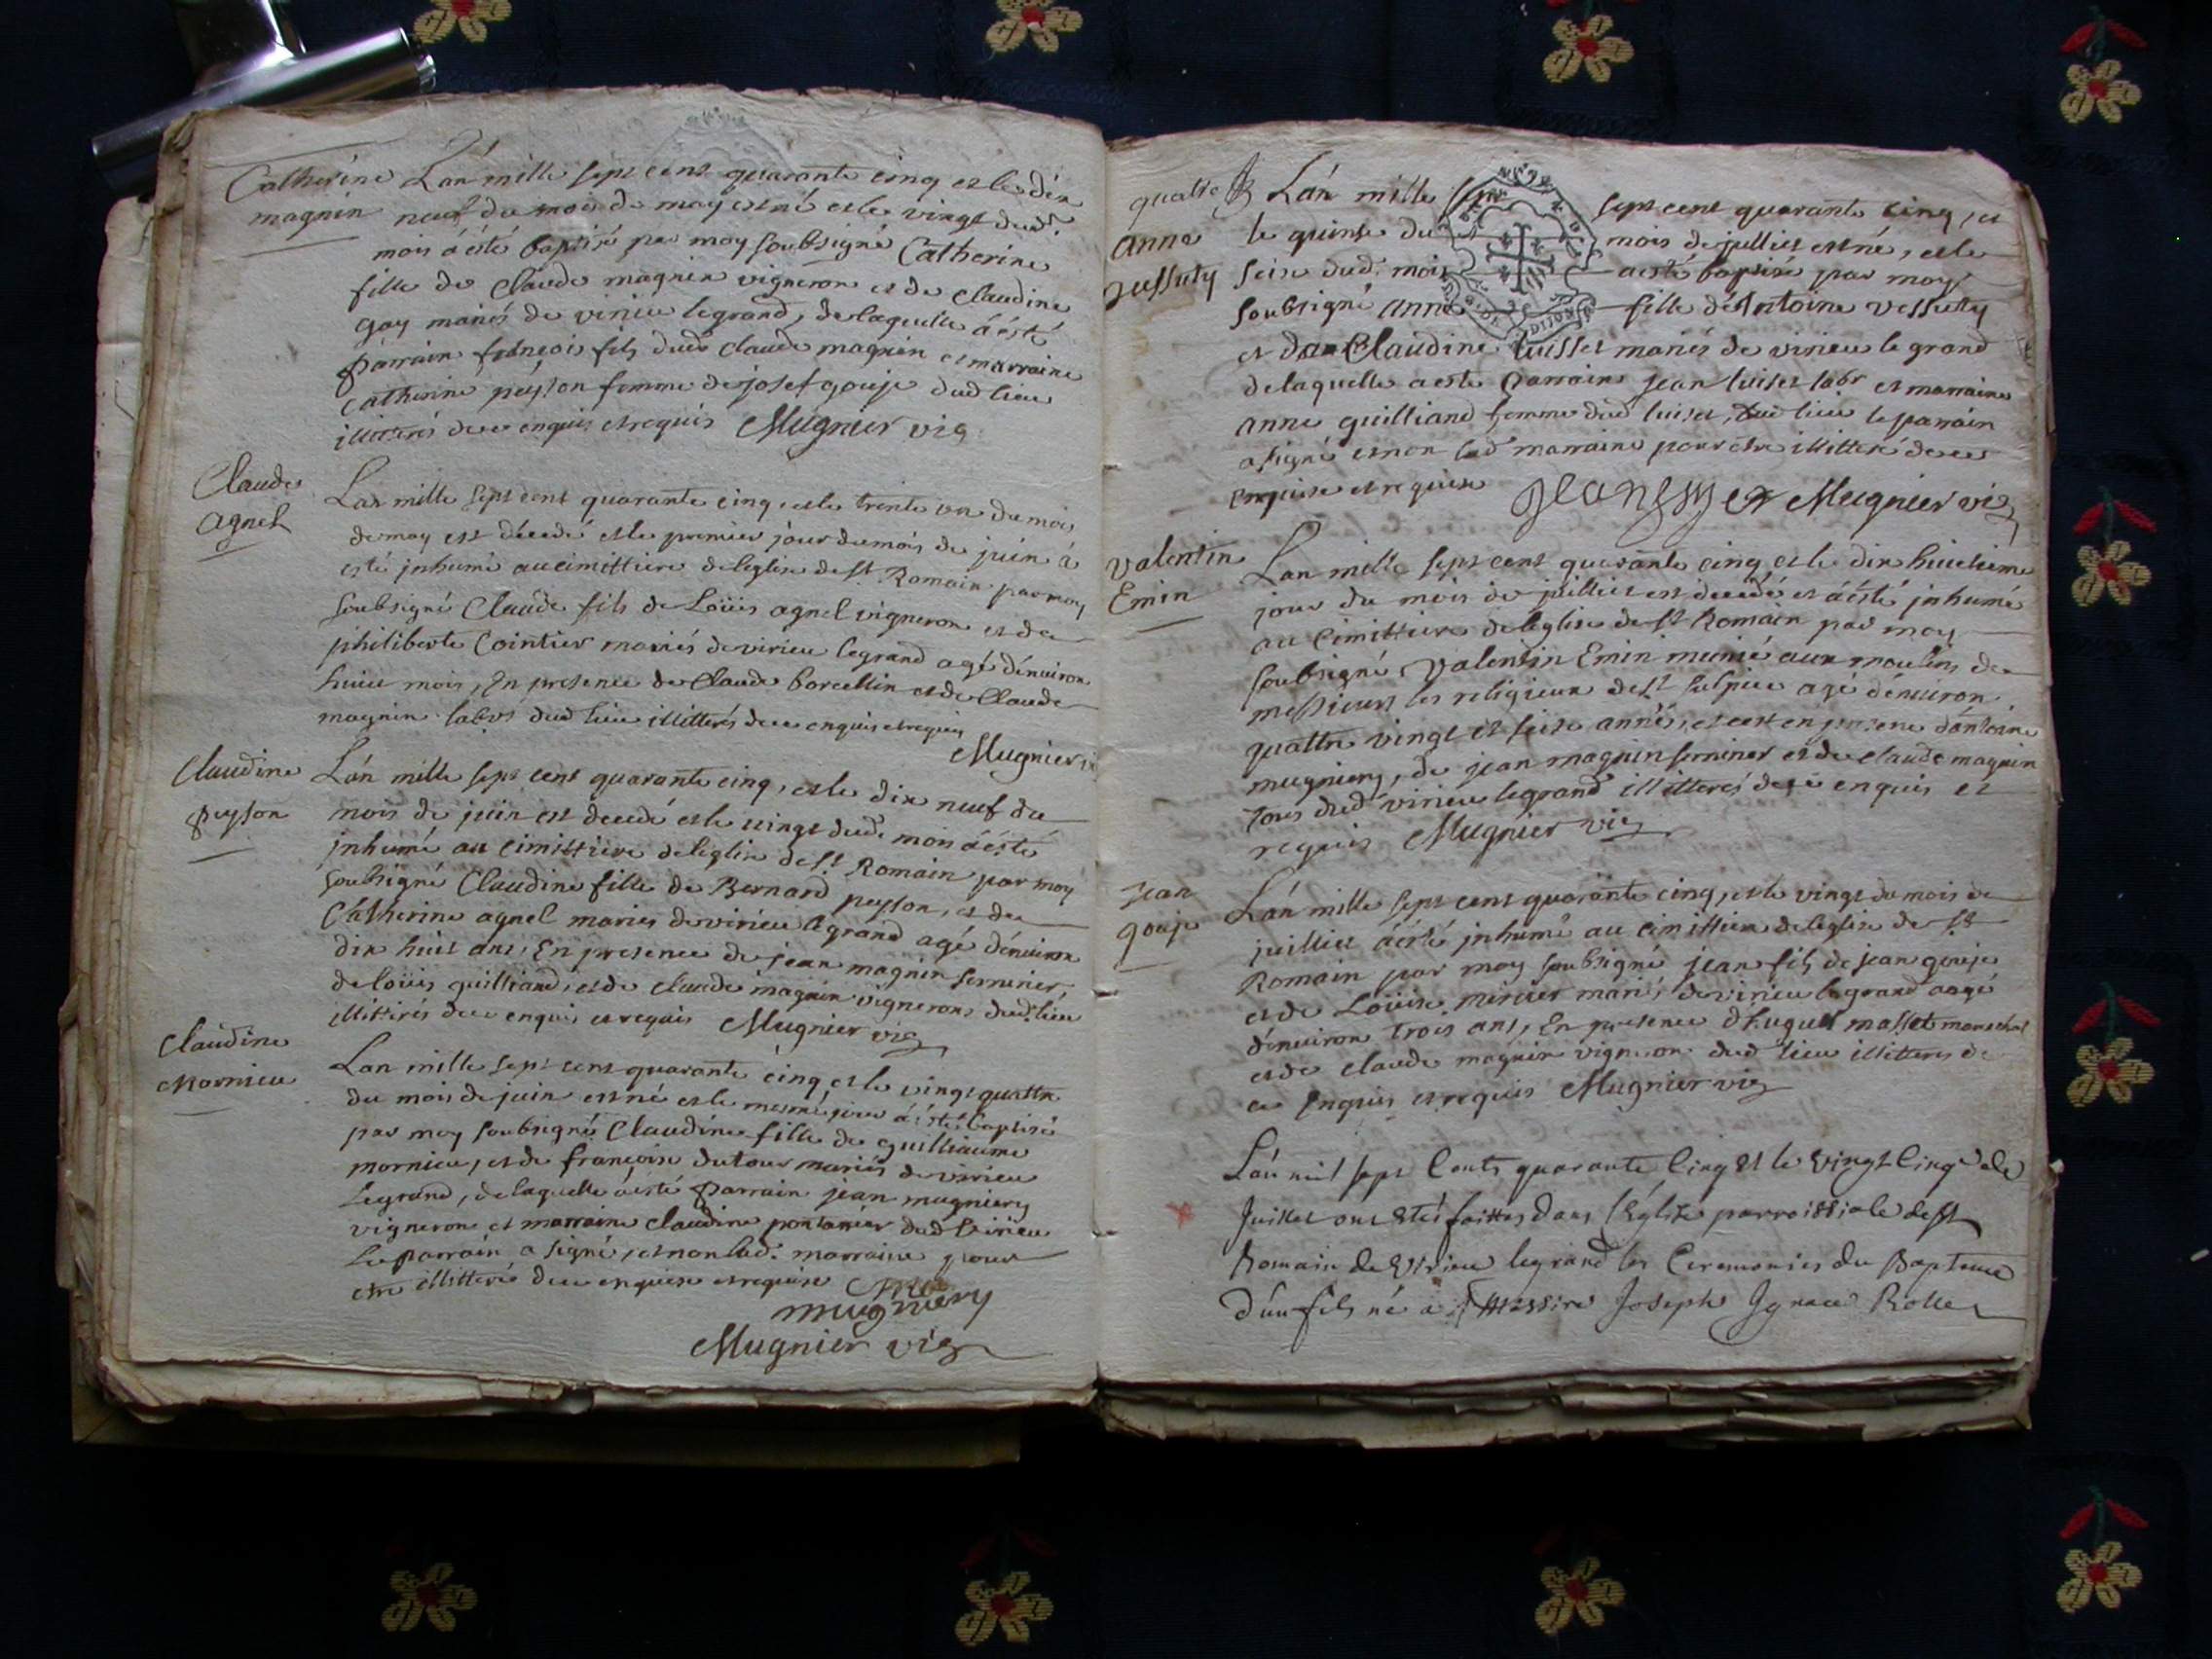 Catherine
magnin
L'an mille sept cent quarante cinq et le dix
neuf du mois de may est né et le vingt dud.
mois a été baptisé par moy soubsigné Catherine
fille de Claude magnin vigneron et de Claudine
Gay mariés de virieu legrand, de laquelle a esté
parrain françois fils dud Claude magnin et marraine
Catherine peyson femme de josef gouje dud lieu
illiterés de ce enquis et requis Mugnier vic
Claude
agnel
L'an mille sept cent quarante cinq, et le trente un du mois
de may est décedé et le premier jour du mois de juin a
esté inhumé au cimittiere de leglise de st Romain par moy
soubsigné Claude fils de Loüis agnel vigneron et de
philiberte Cointier mariés de virieu legrand agé dénuiron
huict mois, En presence de Claude borcellin et de Claude
magnin labrs dud lieu illitterés de ce enquis et requis
Mugnier vic
Claudine
peyson
L'an mille sept cent quarante cinq, et le dix neuf du
mois de juin est decedé et le vingt dud. mois a esté
inhumé au cimittiere de leglise de st Romain par moy
soubsigné Claudine fille de Bernard peyson, et de
Catherine agnel mariés de virieu legrand agé dénuiron
dix huit ans, En presence de jean magnin
de loüis guilliand, et de claude magnin vignerons dud. lieu
illittirés de ce enquis et requis Mugnier vic
Claudine
Mornieu
L'an mille sept cent quarante cinq et le vingt quattre
du mois de juin est né et le mesme jour a esté baptisé
par moy soubsigné Claudine fille de guilliaume
mornieu, et de françoise dutour mariés de virieu
Legrand, de laquelle a esté parrain jean mugniery
vigneron et marraine Claudine dud Virieu
Le parrain a signé, et non lad. marraine pour
etre illitterée de ce enquise et requise
mugniery
Mugnier vic
quatre
anne
vessuty
L'an mille sept cent quarante cinq, et
le quinse du mois de julliet est né, et le
seise dud. mois a esté baptisé par moy
soubsigné anne fille de Antoine vessutty
et de Claudine luisset mariés de virieu le grand
de laquelle a esté parrain jean luiset labr et marraine
anne guilliand femme dud luiset, dud lieu le parrain
a signé et non lad marraine pour etre illitteré de ce
enquise et requise Mugnier vic
valentin
Emin
L'an mille sept cent quarante cinq et le dix huictieme
jour du mois de julliet est decedé et a esté inhumé
au cimittiere de leglise de st Romain par moy
soubsigné, Valentin Emin aux moulins de
messieurs les religieux de st sulpice agé dénuiron
quattre vingt et seise années, et cest en presence dántoine
mugniery, de jean magnin et de claude magnin
tous dud virieu legrand illitterés de ce enquis et
requis Mugnier vic
Jean
gouje
L'an mille sept cent quarante cinq, et le vingt du mois de
juilliet a esté inhumé au cimittiere de leglise de st
Romain par moy soubsigné jean fils de jean gouje
et de Loüise mercier mariés de virieu legrand aagé
dénuiron trois ans, En presence dhugues masset mareschal
et de claude magnin vigneron dud lieu illitterés de
ce enquis et requis Mugnier vic
L'an mil sept Cents quarante Cinq Et le vingt Cinq de
Juillet ont Etés faittes dans l'Eglise parroissiale de St
Romain de Virieu legrand les Ceremonies du Bapteme
d'un fils né a Messire Joseph Ignace Rolle